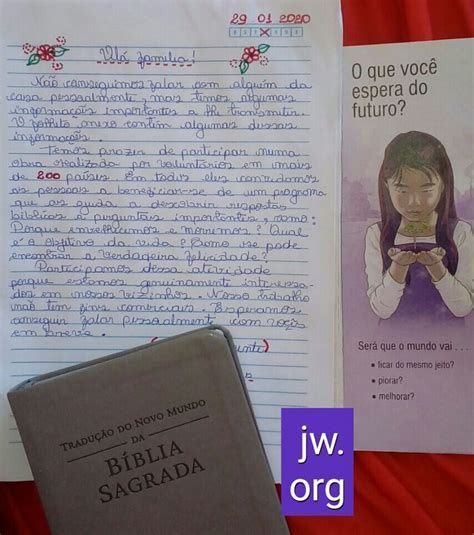 29 01 2020
Olá família!
Não conseguimos falar com alguém da
casa pessoalmente, mas temos algumas
informações importantes a lhe transmitir.
O folheto anexo contém algumas dessas
informações.
Temos prazer de participar numa
obra realizada por voluntários em mais
de 200 países. Em todos eles convidamos
as pessoas a beneficiar-se de um programa
que as ajuda a descobrir respostas
bíblicas a perguntas importantes, como:
Porque envelhecemos e morremos? Qual
é o objetivo da vida? Como se pode
encontrar a verdadeira felicidade?
Participamos dessa atividade
porque estamos genuinamente interessa-
dos em nossos vizinhos. Nosso trabalho
não tem fins comerciais. Esperamos
conseguir falar pessoalmente com vocês
em breve.
O que você
espera do
futuro?
Será que o mundo vai ...
• ficar do mesmo jeito?
• piorar?
• melhorar?
TRADUÇÃO DO NOVO MUNDO
DA
BÍBLIA
SAGRADA
jw.
org